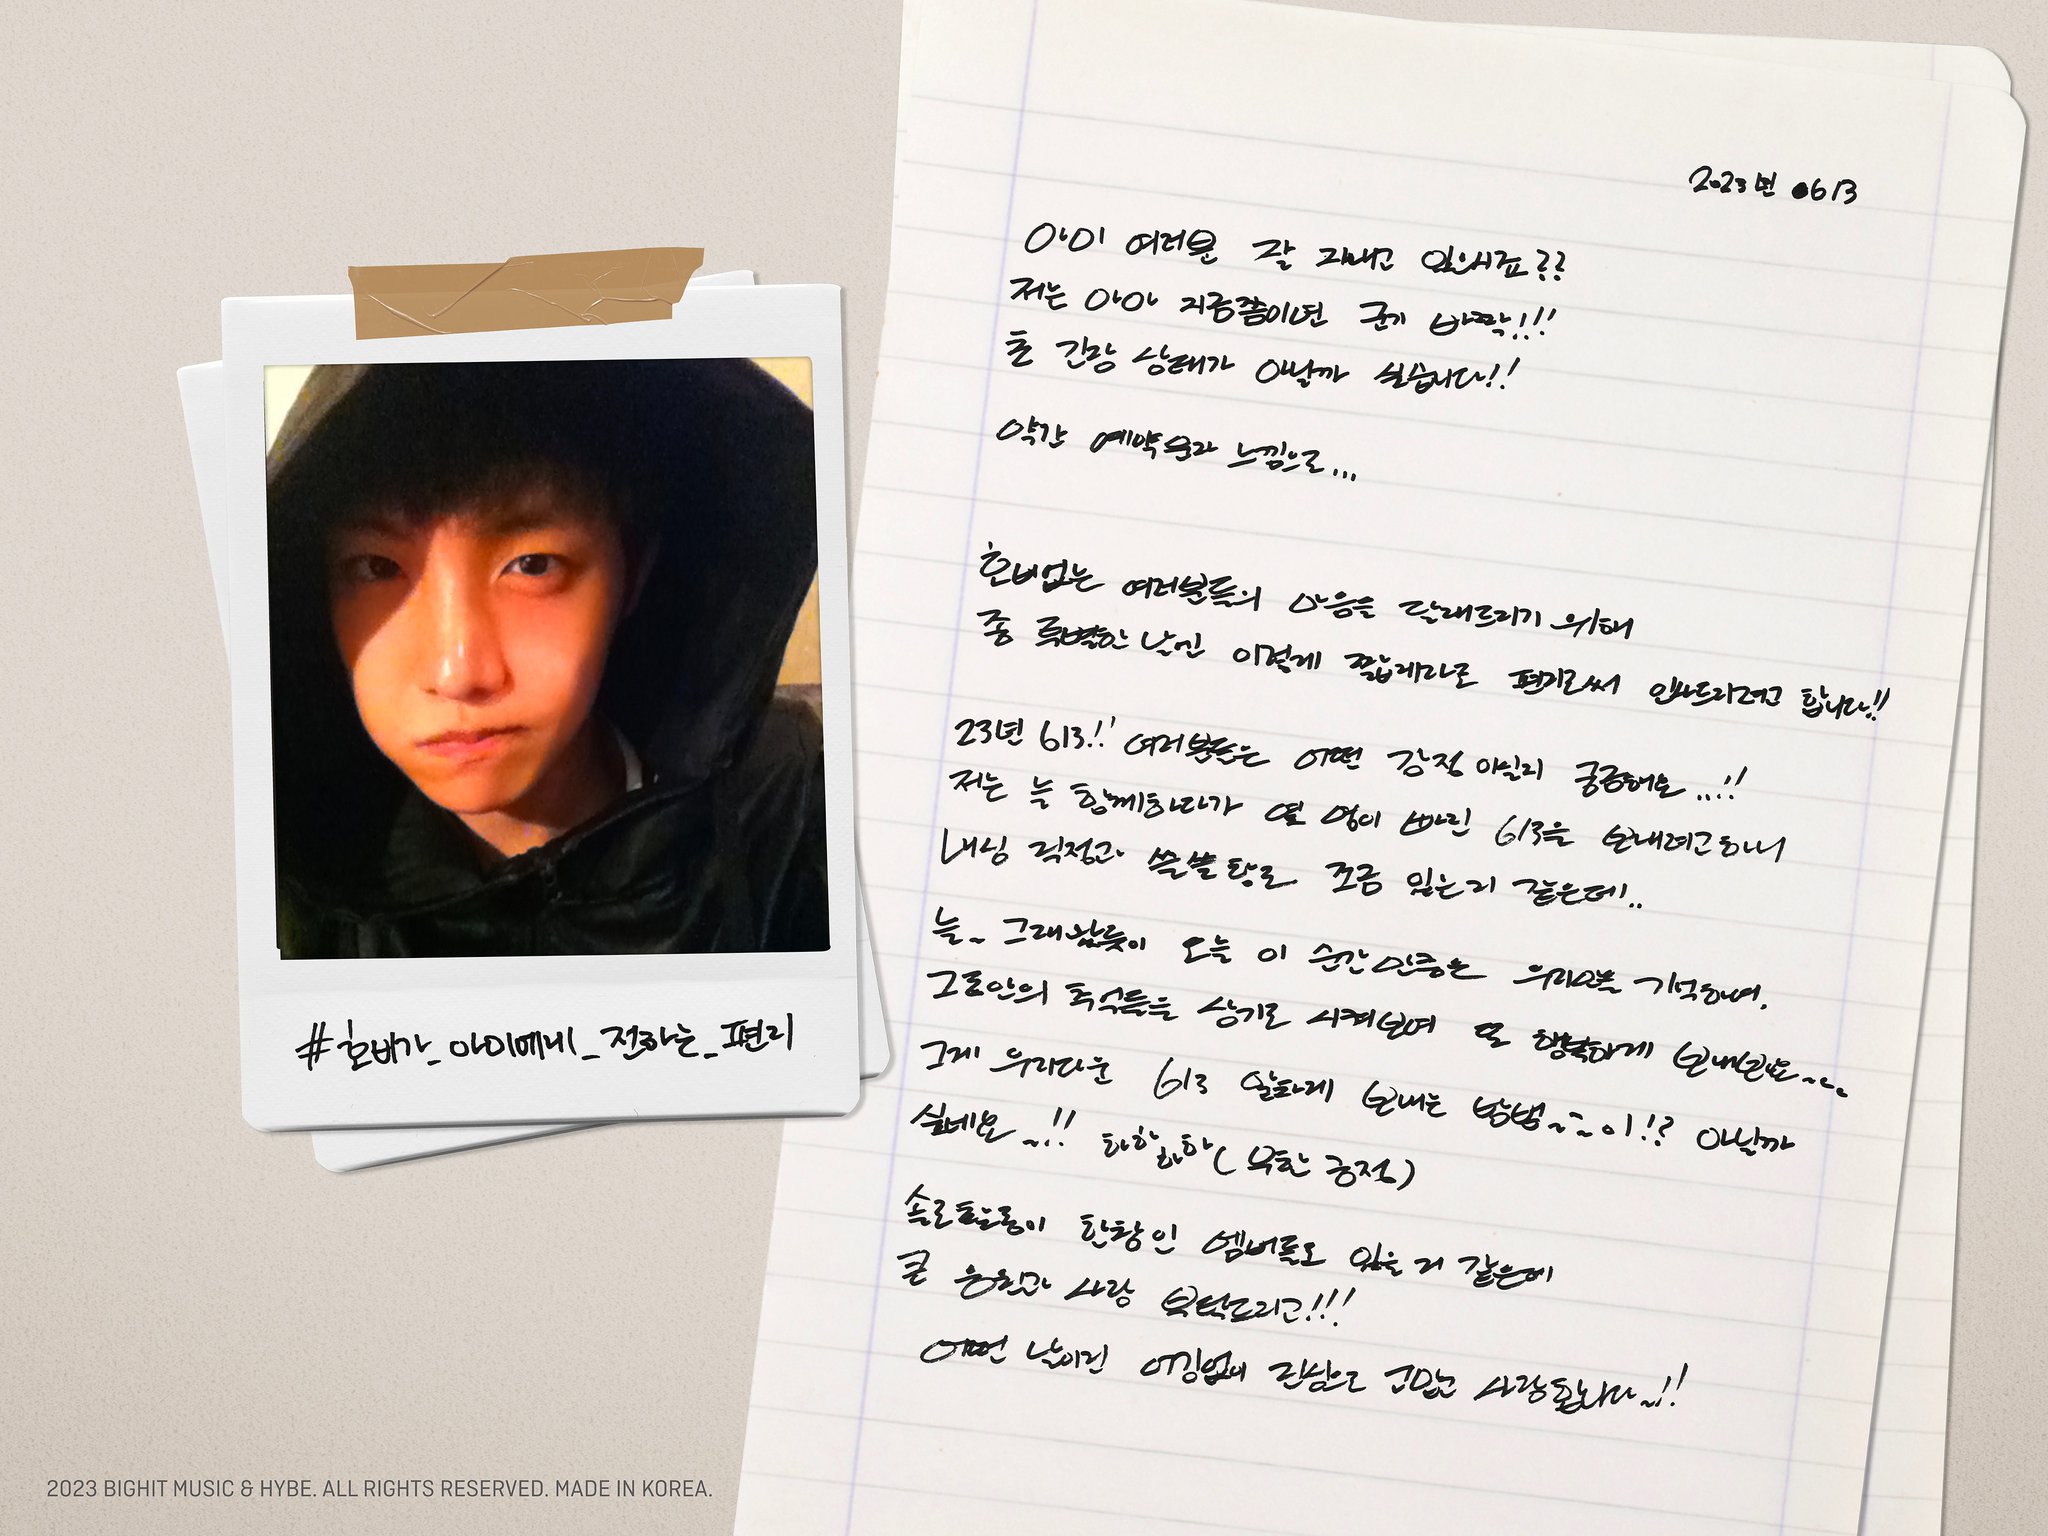 #호비가_아미에게_전하는_편지
2023년 0613
아미 여러분 잘 지내고 있으시죠??
저는 아마 지금쯤이면 군기 바짝!!!
초 긴장 상태가 아닐까 싶습니다!!
약간 예약문자 느낌으로...
호비없는 여러분들의 마음을 달래드리기 위해
좀 특별한 날인 이렇게 짧게나마 편지로써 인사드리려고 합니다!!
23년 613!! 여러분들은 어떤 감정 이실지 궁금해요..!!
저는 늘 함께하다가 옆 없이 빠진 613을 보내려고하니
내심 걱정과 쓸쓸함도 조금 있는거 같은데..
늘~ 그래왔듯이 오늘 이 순간 만큼은 우리만을 기억하며,
그동안의 추억들을 상기도 시켜보며 또 행복하게 보내봐요~~~
그게 우리다운 613 알차게 보내는 방법~~~이!? 아닐까
싶네요~!! 하핳하핳(무한긍정)
솔로활동이 한창인 멤버들도 있을 거 같은데
큰 응원과 사랑 부탁드리고!!!
어떤 날이던 어김없이 진심으로 고맙고 사랑합니다~!!
2023 BIGHIT MUSIC & HYBE. ALL RIGHTS RESERVED. MADE IN KOREA.